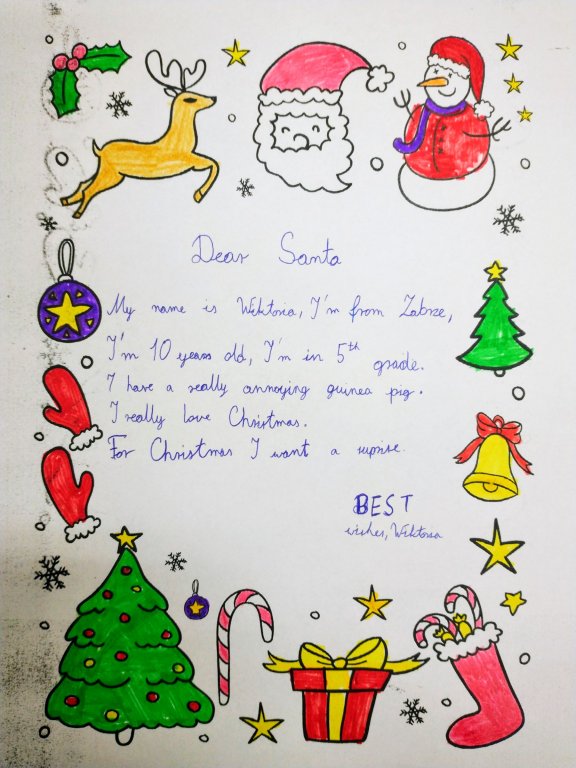 Dear Santa
My name is Wiktoria, I'm from Zabrze,
I'm 10 years old, I'm in 5th grade.
I have a really annoying guinea pig.
I really love Christmas.
For Christmas I want a suprise.
BEST
wishes, Wiktoria